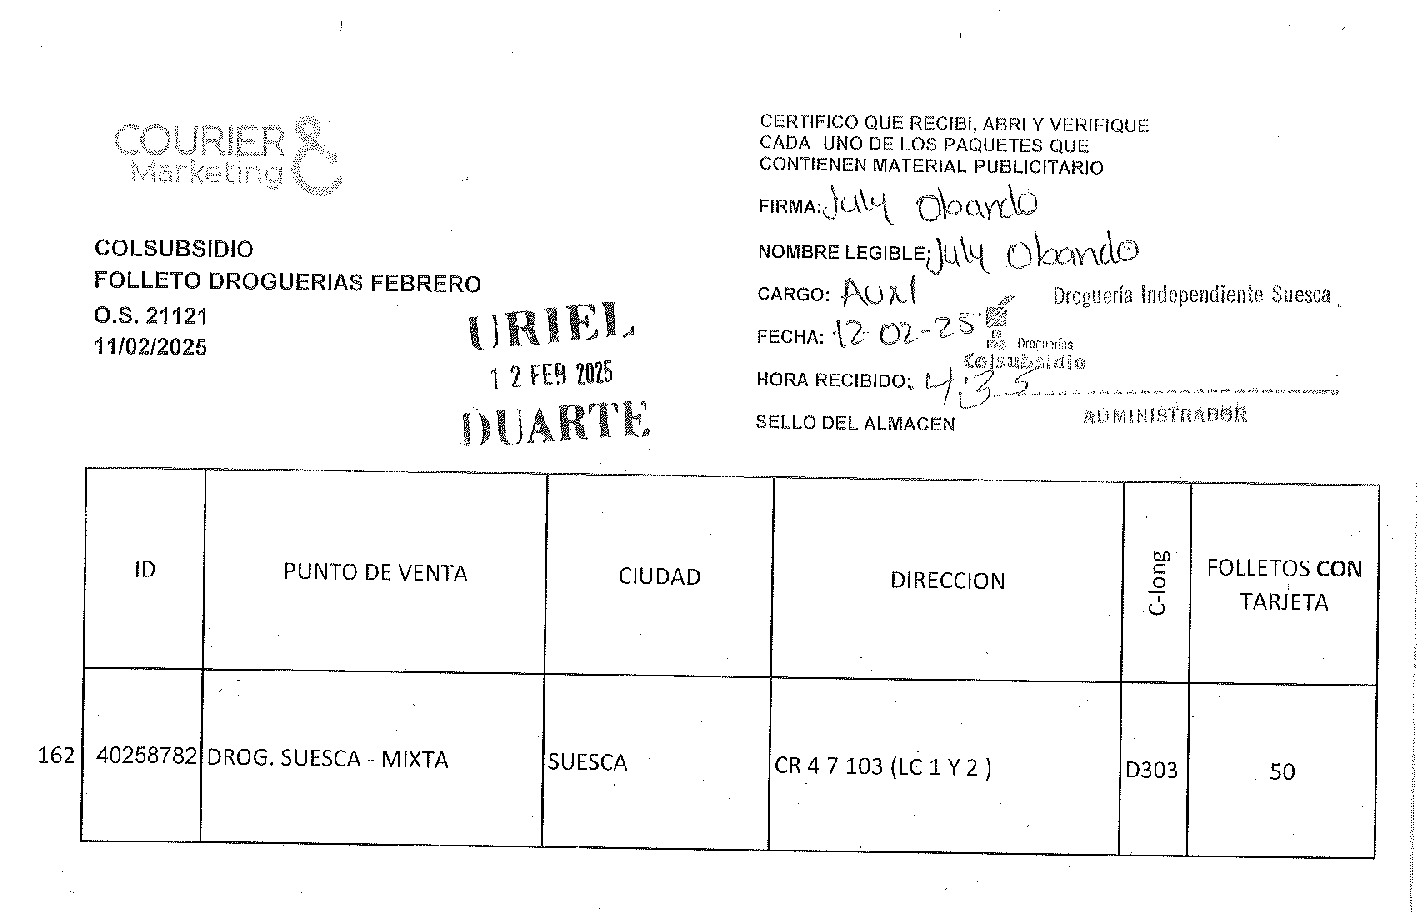 COURIER
Marketing
COLSUBSIDIO
FOLLETO DROGUERIAS FEBRERO
O.S. 21121
11/02/2025
URIEL
12 FEB 2025
DUARTE
CERTIFICO QUE RECIBI, ABRI Y VERIFIQUE
CADA UNO DE LOS PAQUETES QUE
CONTIENEN MATERIAL PUBLICITARIO
FIRMA: July Obando
NOMBRE LEGIBLE: July Obando
CARGO: AUXI
Droguería Independiente Suesca
FECHA: 12-02-25
Droguerías
Colsubsidio
HORA RECIBIDO: 4:35
SELLO DEL ALMACEN
ADMINISTRADOR
ID PUNTO DE VENTA CIUDAD DIRECCION C-long FOLLETOS CON TARJETA
162 40258782 DROG. SUESCA - MIXTA SUESCA CR 4 7 103 (LC 1 Y 2 ) D303 50